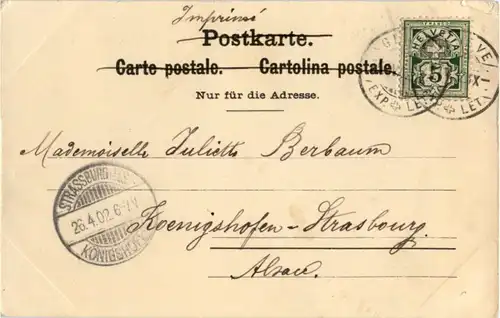 Imprimé
Postkarte.
Carte postale. Cartolina postale.
Nur für die Adresse.
HELVETIA
5
EXP. LET
Mademoiselle Juliette Berbaum
Koenigshofen-Strasbourg.
Alsace.
STRASSBURG
26.4.02.6-7V
KÖNIGSHOFEN